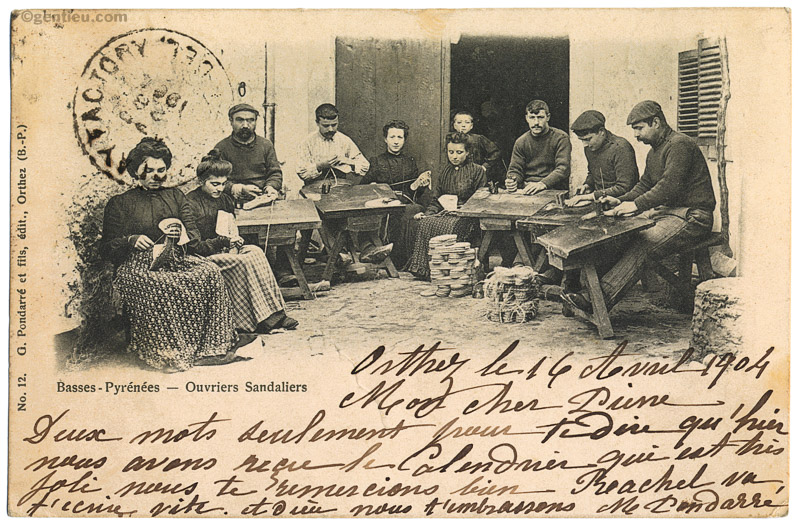 ©gentieu.com
VICTORY
No. 12. G. Pondarré et fils, édit., Orthez (B.-P.)
Basses-Pyrénées — Ouvriers Sandaliers
Orthez le 16 Avril 1904
Mon cher Pierre
Deux mots seulement pour te dire qu'hier
nous avons reçu le Calendrier qui est très
joli nous te remercions bien Reachel va
t'ecrire vite. Adieu nous t'embrassons M Pondarré